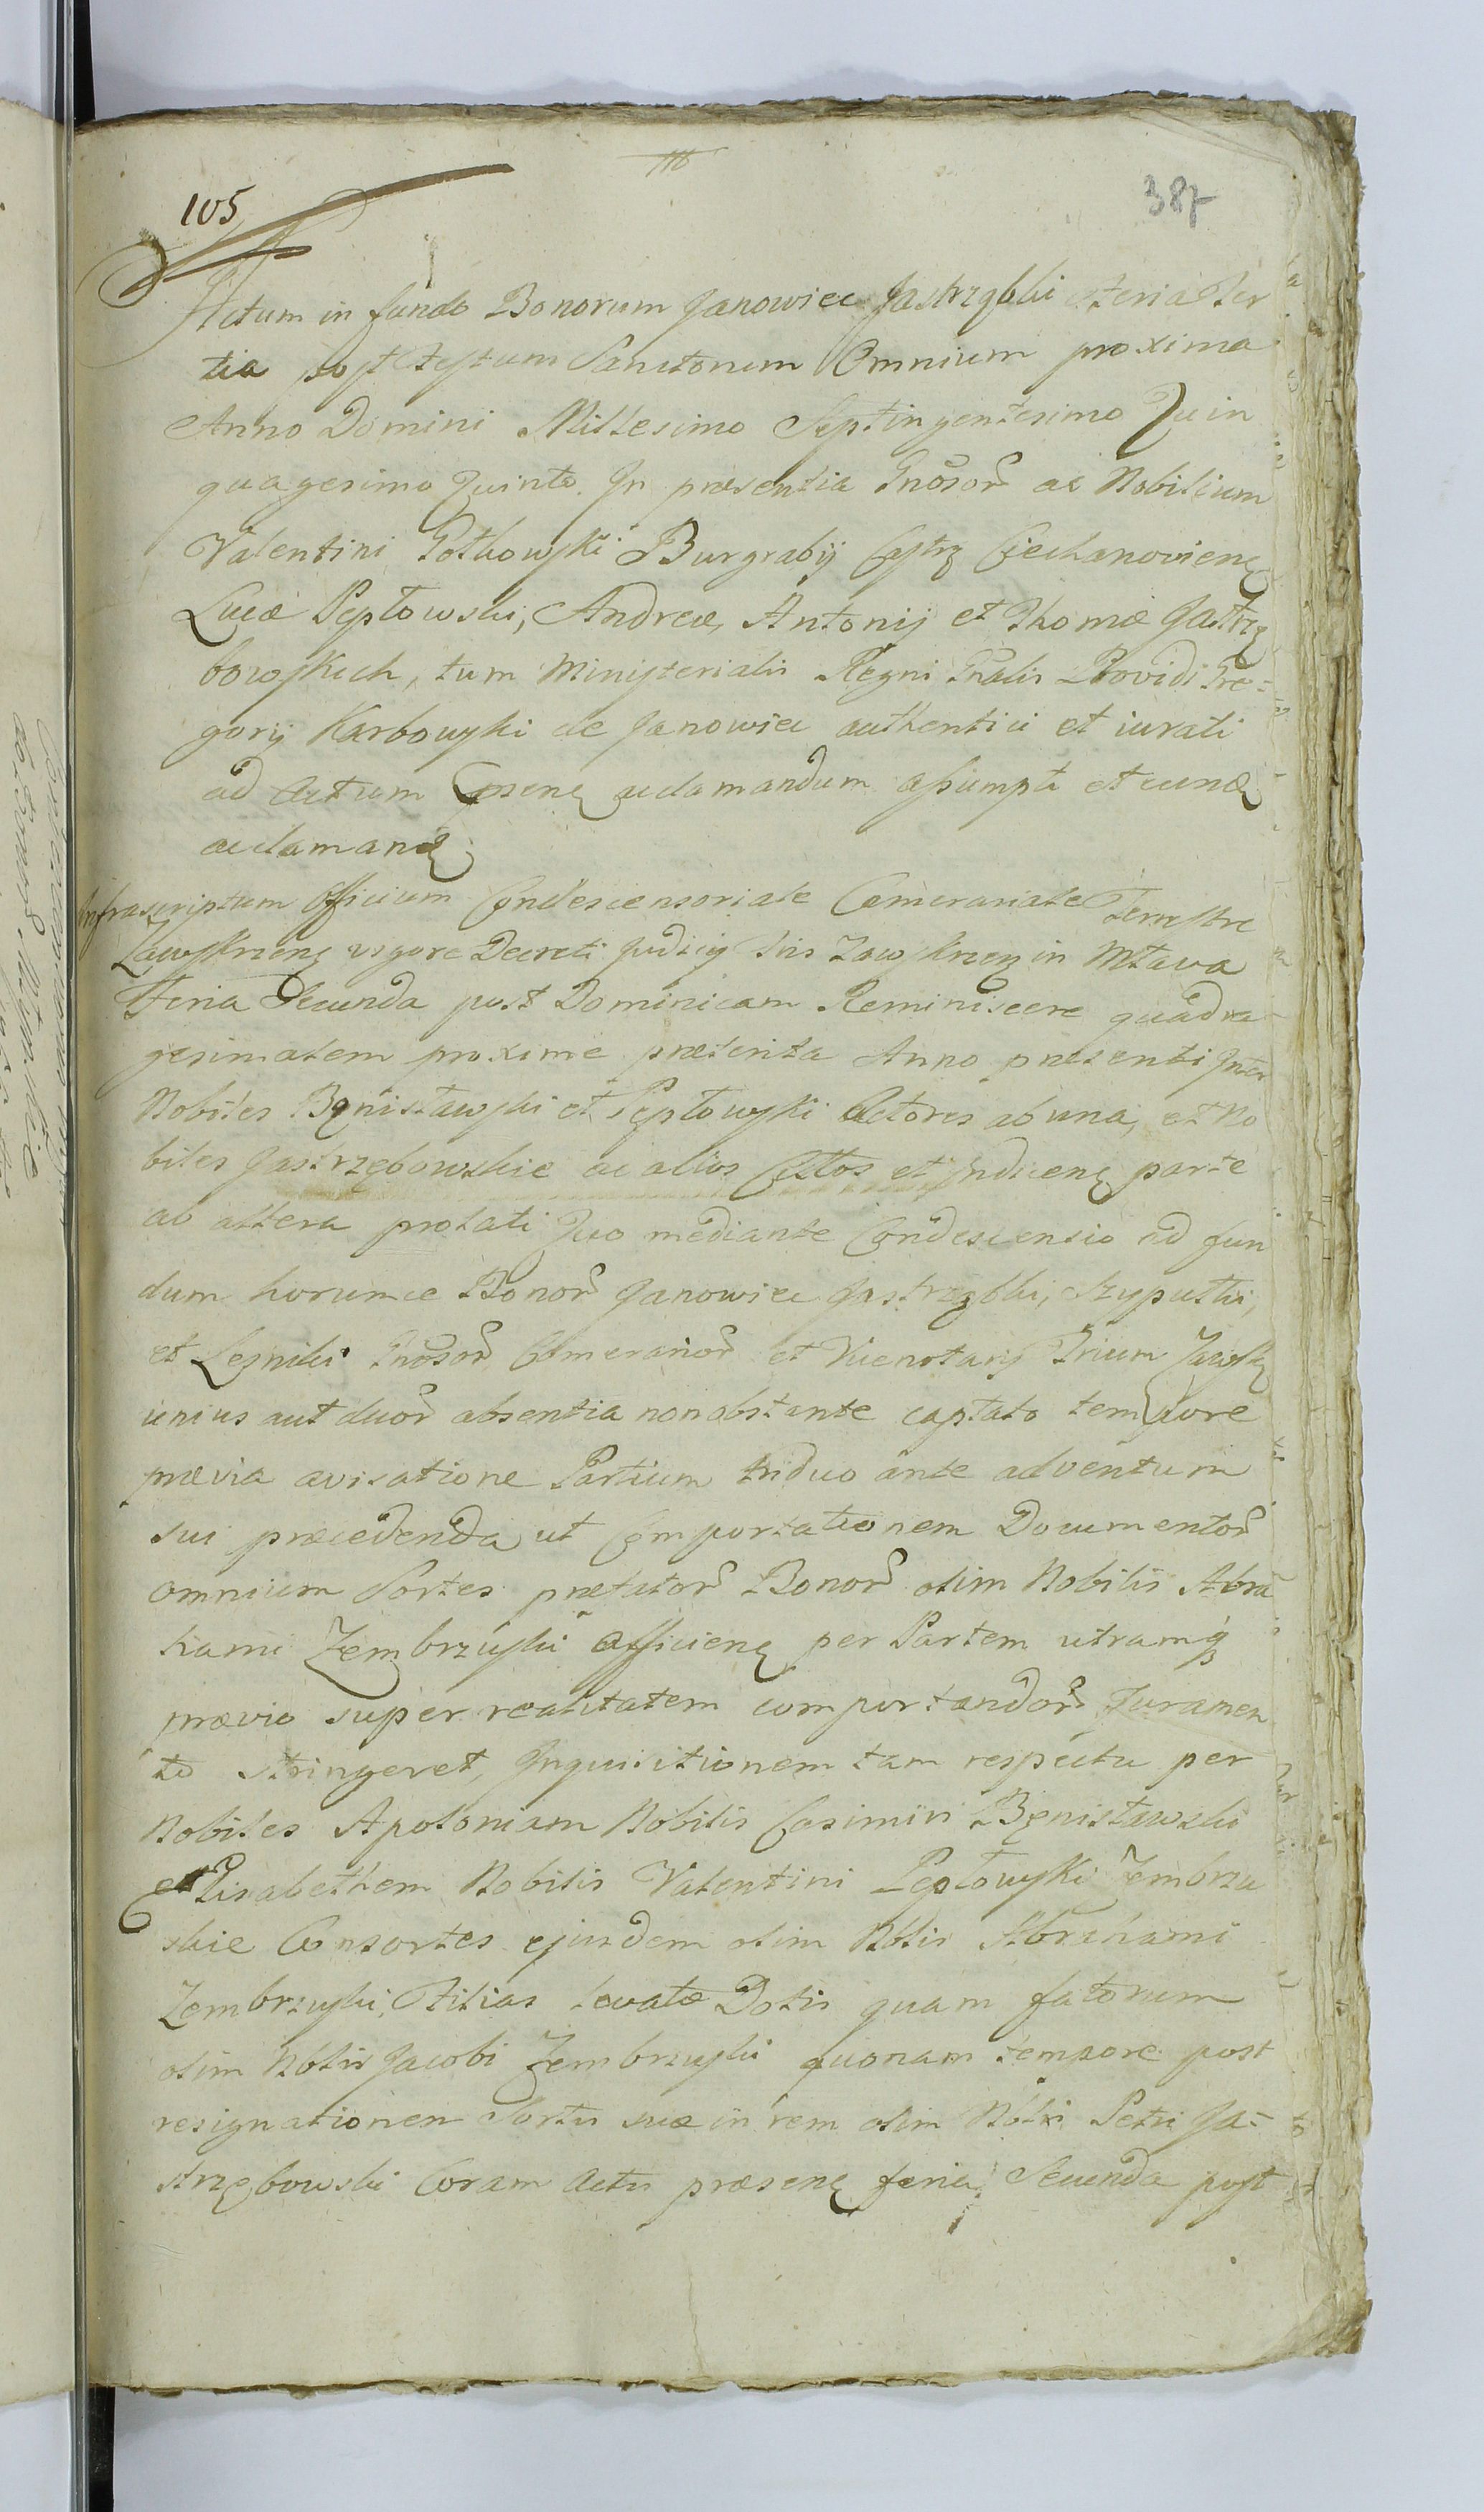 105
387
Actum in fundo Bonorum Janowiec Jastrząbki Feria Ter
tia post Festum Sanctorum Omnium proxima
Anno Domini Millesimo Septingentesimo Quin
quagesimo Quinto. In praesentia Gnosor ac Nobilium
Valentini Gotkowski Burgrabij Castr Ciechanovien
Lucae Peptowski, Andreae, Antonij et Thomae Jastrzę
bowskich, tum Ministerialis Regni Gnalis Providi Gre=
gorij Karbowski de Janowiec authentici et iurati
ad Actum praesen acclamandum assumpti et eund
acclamand
Infrascriptum Officium Condescensoriale Camerariale Terrestre
Zawskrzen vigore Decreti Judicij Tris Zawskrzen in Mlava
Feria Secunda post Dominicam Reminiscere quadra
gesimalem proxime praeterita Anno praesenti Inter
Nobiles Bęnisławski et Pęptowski Actores ab una, et No
biles Jastrzębowskie ac alios Cittos et Indicen parte
ab altera prolati Quo mediante Condescensio ad fun
dum horumce Bonor Janowiec Jastrząbki, Szyputki,
et Lesniki Gnosor Camerarior et Vicenotarij Trium Zawsk
unius aut duor absentia non obstante captato tempore
praevia avisatione Partium triduo ante adventum
sui praecedenda, ut Comportationem Documentor
omnium Sortes praefator Bonor olim Nobilis Abra
hami Zembrzuski afficien per Partem utramq
praevio super realitatem comportandor Juramen
to stringeret, Inquisitionem tam respectu per
Nobiles Apoloniam Nobilis Casimiri Bęnisławski
et Elisabethem Nobilis Valentini Pęptowski Zembrzu
skie Consortes ejusdem olim Nblis Abrahami
Zembrzuski Filias levatae Dotis quam fatorum
olim Nblis Jacobi Zembrzuski quonam tempore post
resignationem Sortis suae in rem olim Nblis Petri Ja=
strzębowski Coram Actis praesen feria Secunda post